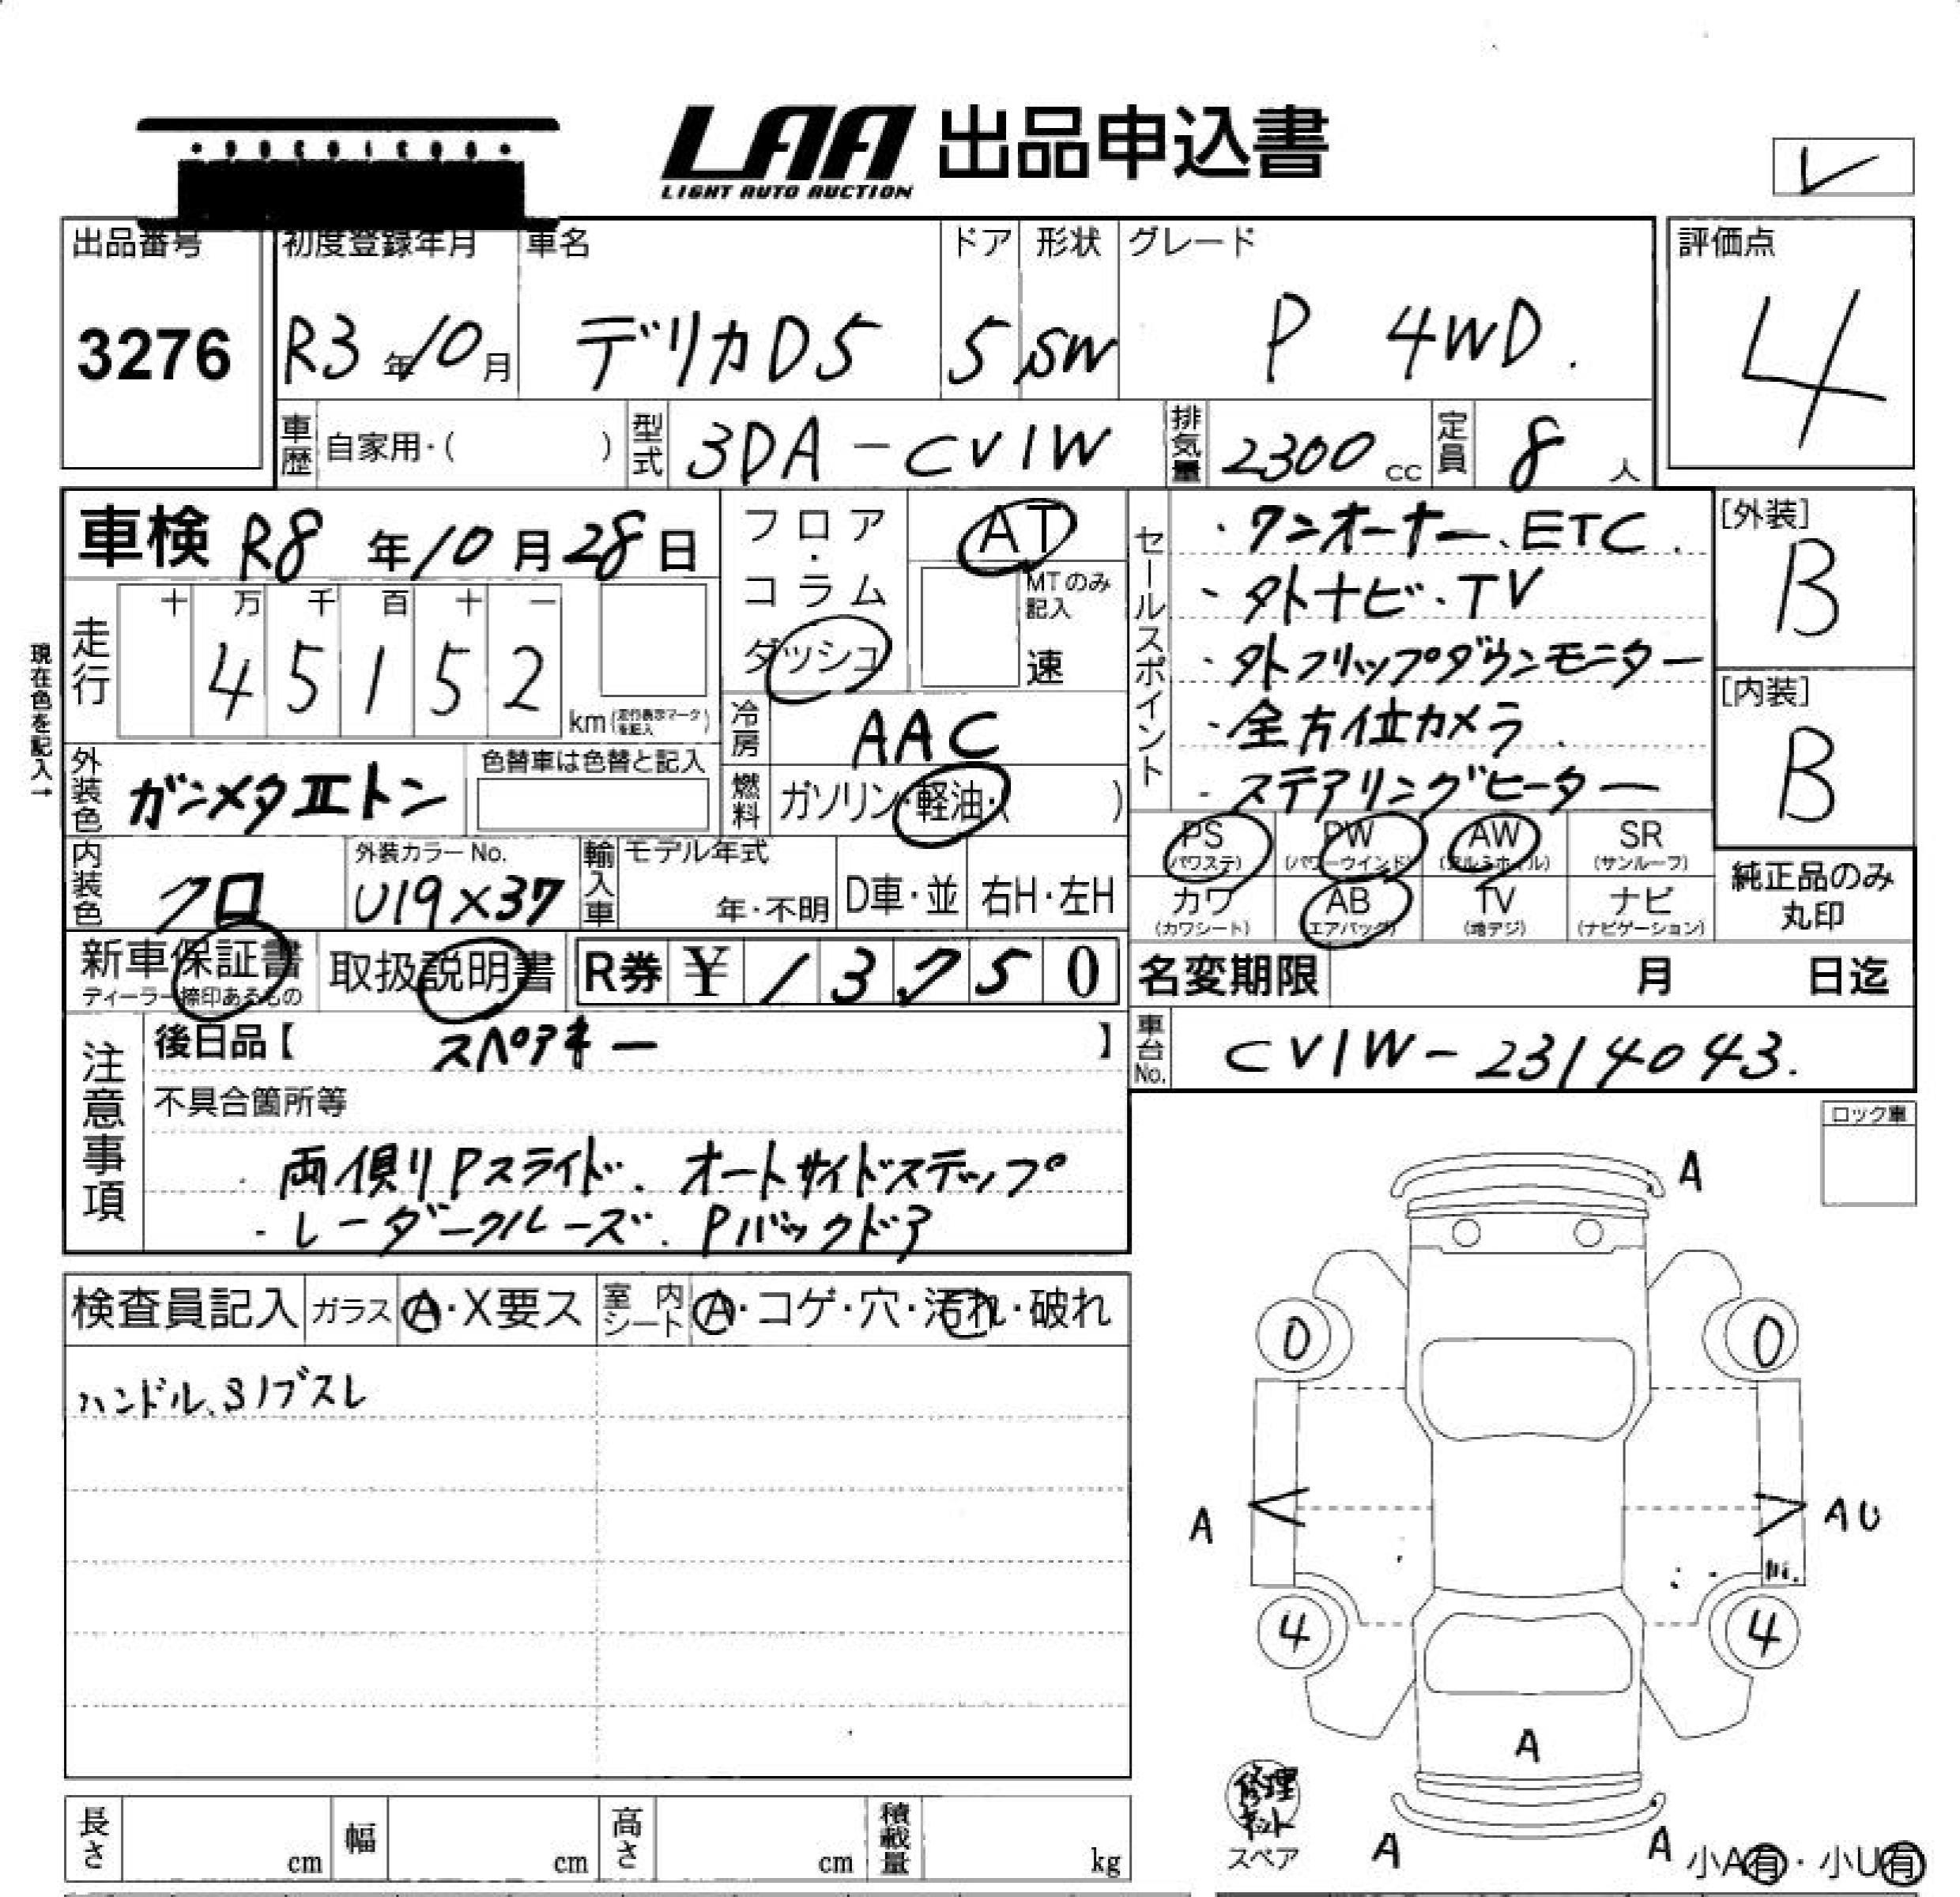 LAA 出品申込書
LIGHT AUTO AUCTION
レ
出品番号 初度登録年月 車名 ドア 形状 グレード 評価点
3276 R3年10月 デリカD5 5 SW P 4WD. 4
車歴 自家用・( ) 型式 3DA-CV1W 排気量 2300cc 定員 8人
車検 R8年10月28日
フロア・コラム
ダッシュ
AT
MTのみ記入
速
セールスポイント
・ワンオーナー、ETC.
・外ナビ・TV
・外フリップダウンモニター
・全方位カメラ
・ステアリングヒーター
[外装]
B
[内装]
B
現在色を記入→
走行 十 万 千 百 十 一
45152 km(走行表示マークを記入)
冷房 AAC
外装色 ガンメタⅡトン 色替車は色替と記入
燃料 ガソリン・軽油・( )
内装色 クロ 外装カラーNo. U19×37
輸入車 モデル年式 年・不明 D車・並 右H・左H
PS (パワステ) PW (パワーウインド) AW (アルミホイル) SR (サンルーフ)
カワ (カワシート) AB (エアバッグ) TV (地デジ) ナビ (ナビゲーション)
純正品のみ丸印
新車保証書 ディーラー捺印あるもの 取扱説明書 R券 ¥13750
名変期限 月 日迄
車台No. CV1W-2314043.
注意事項
後日品【 スペアキー 】
不具合箇所等
・両側Pスライド、オートサイドステップ
・レーダークルーズ、Pバックドア
ロック車
検査員記入 ガラス A・X要ス 室内シート A・コゲ・穴・汚れ・破れ
ハンドル、Sノブスレ
A
0 0
A AU
4 4
A
修理キット
スペア
A A
小A有・小U有
長さ cm 幅 cm 高さ cm 積載量 kg